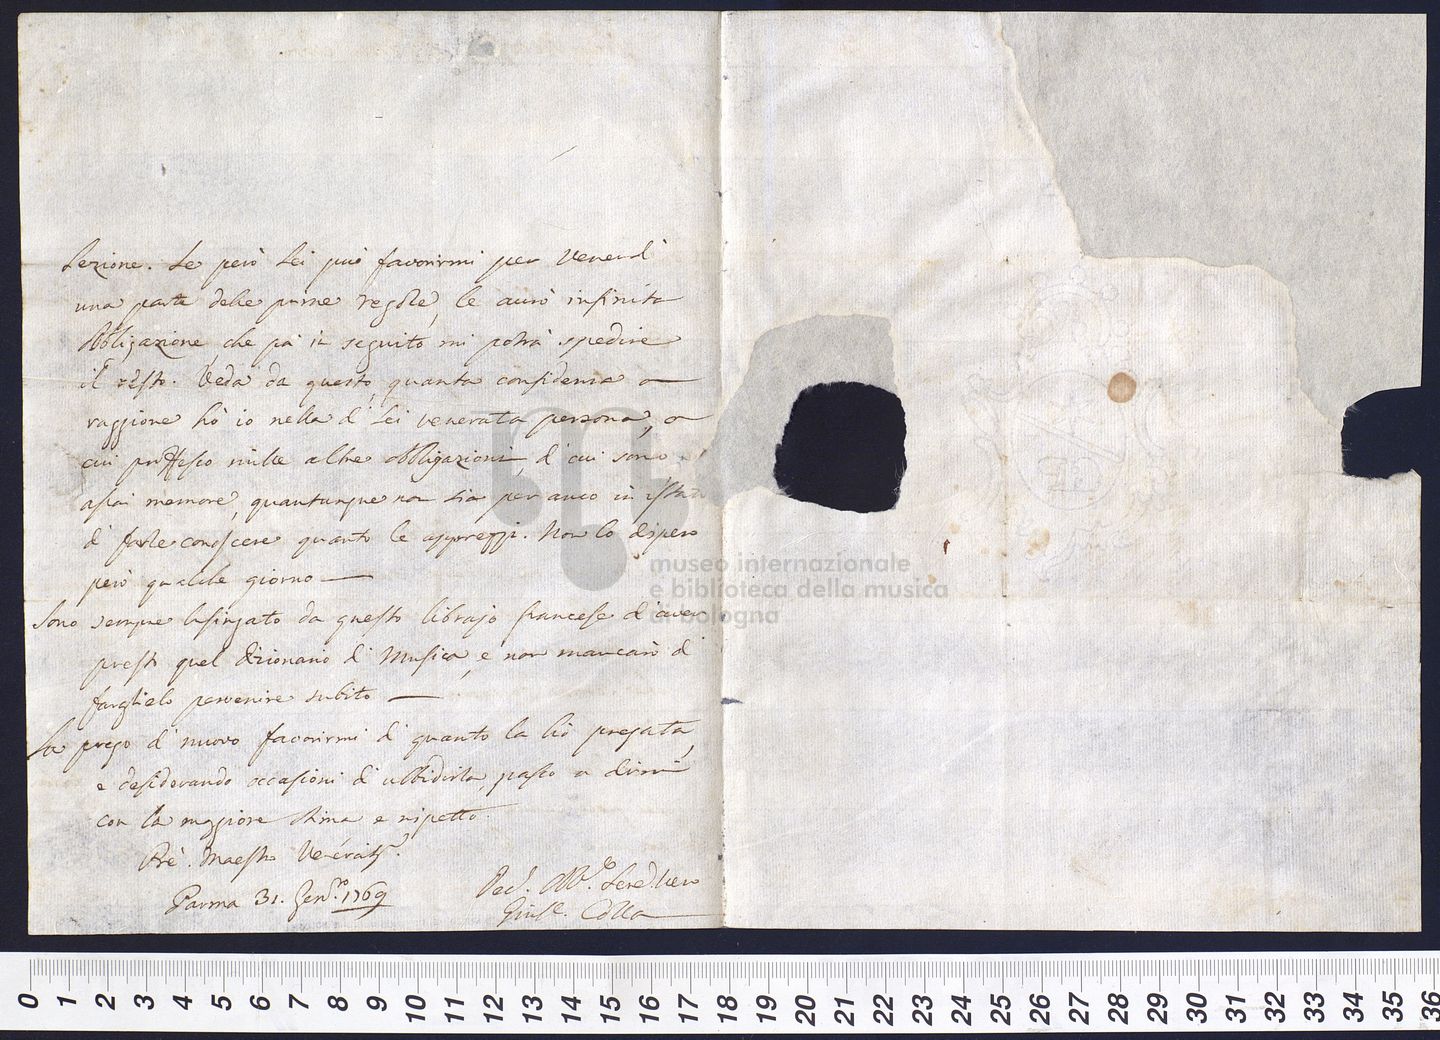 lezione. Se però Lei può favorirmi per Venerdì
una parte delle prime regole, le avrò infinita
obbligazione, che poi in seguito mi potrà spedire
il resto. Veda da questo, quanta confidenza e
raggione hò io nella di Lei venerata persona, a
cui professo mille altre obbligazioni, di cui sono
assai memore, quantunque non sia per anco in istato
di farle conoscere quanto le apprezzi. Non lo dispero
però qualche giorno —
Sono sempre lusingato da questo librajo francese d'aver
presto quel dizionario di Musica, e non mancarò di
farglielo pervenire subito —
La prego di nuovo favorirmi di quanto la hò pregata,
e desiderando occasioni di ubbidirla, passo a dirmi
con la maggiore stima e rispetto.
Pre. Maestro Venerat.
Parma 31. Gen.ro 1769
Dev. Obb.o Servidore
Gius.e Colla
museo internazionale
e biblioteca della musica
di bologna
0 1 2 3 4 5 6 7 8 9 10 11 12 13 14 15 16 17 18 19 20 21 22 23 24 25 26 27 28 29 30 31 32 33 34 35 36